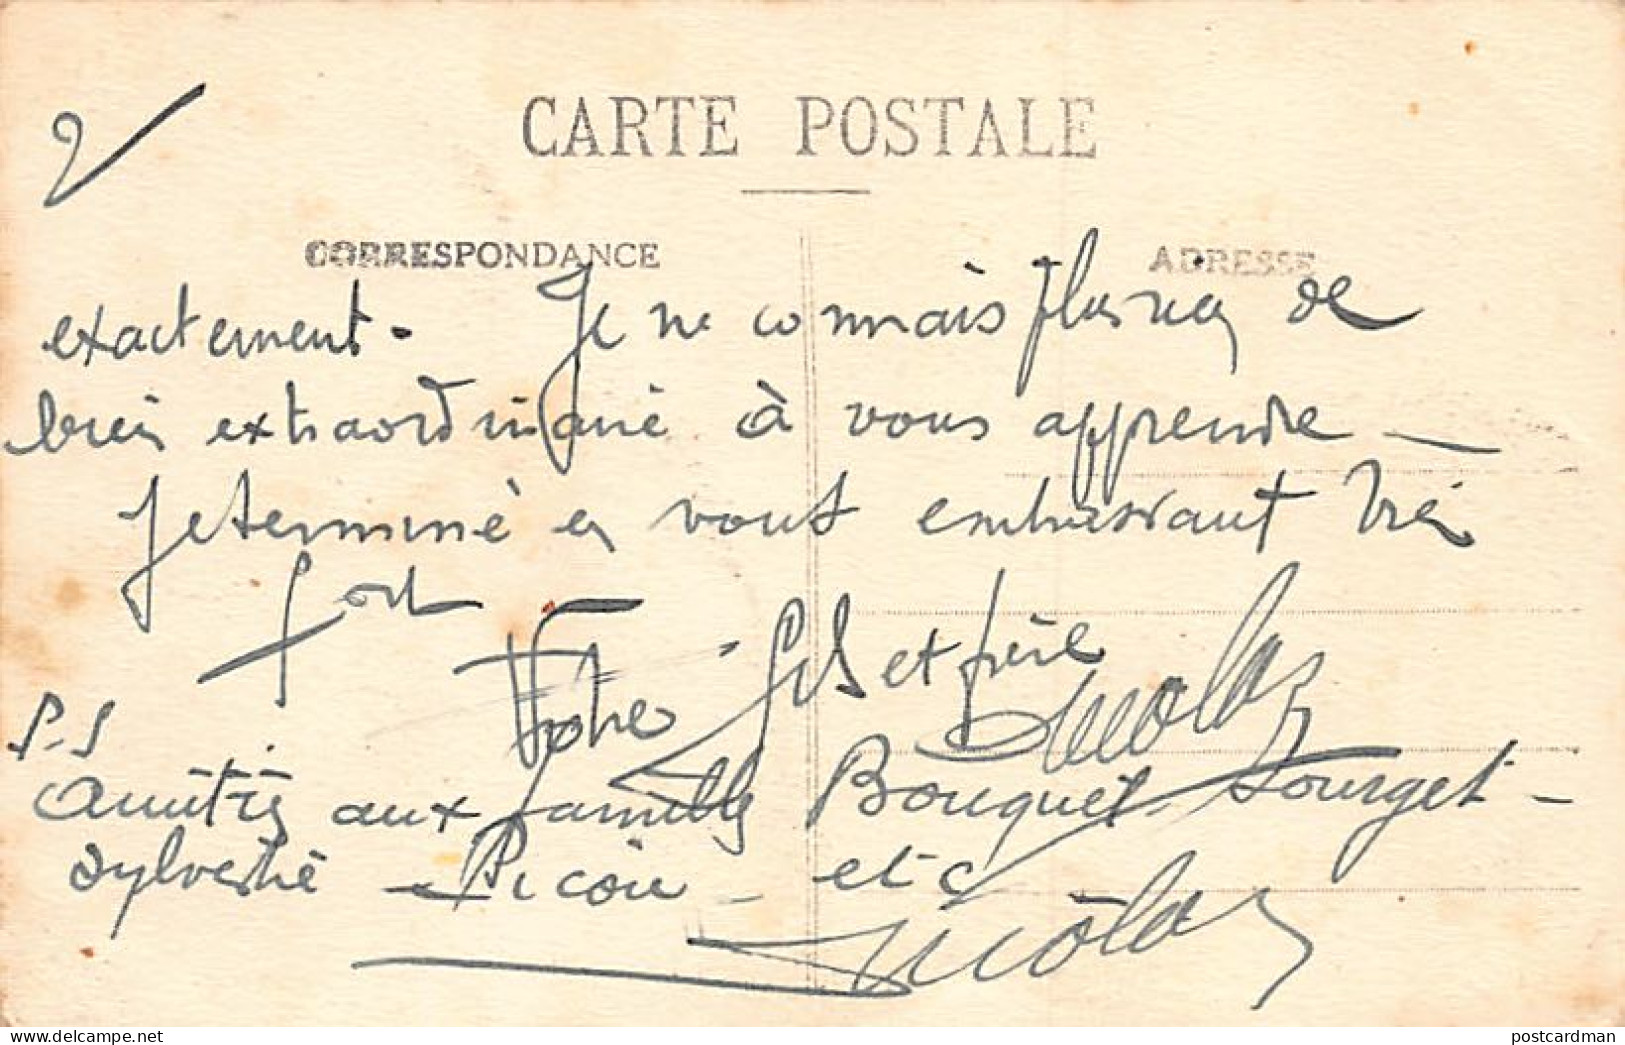 2/
CARTE POSTALE
CORRESPONDANCE ADRESSE
exactement. Je ne connais plus rien de
bien extraordinaire à vous apprendre –
Je termine en vous embrassant très
fort
Votre fils et frère
Nicolas
P.S
Amitiés aux familles Bouquet Sourget –
Sylvestre – Picoin – etc
Nicolas
delcampe.net
postcardman